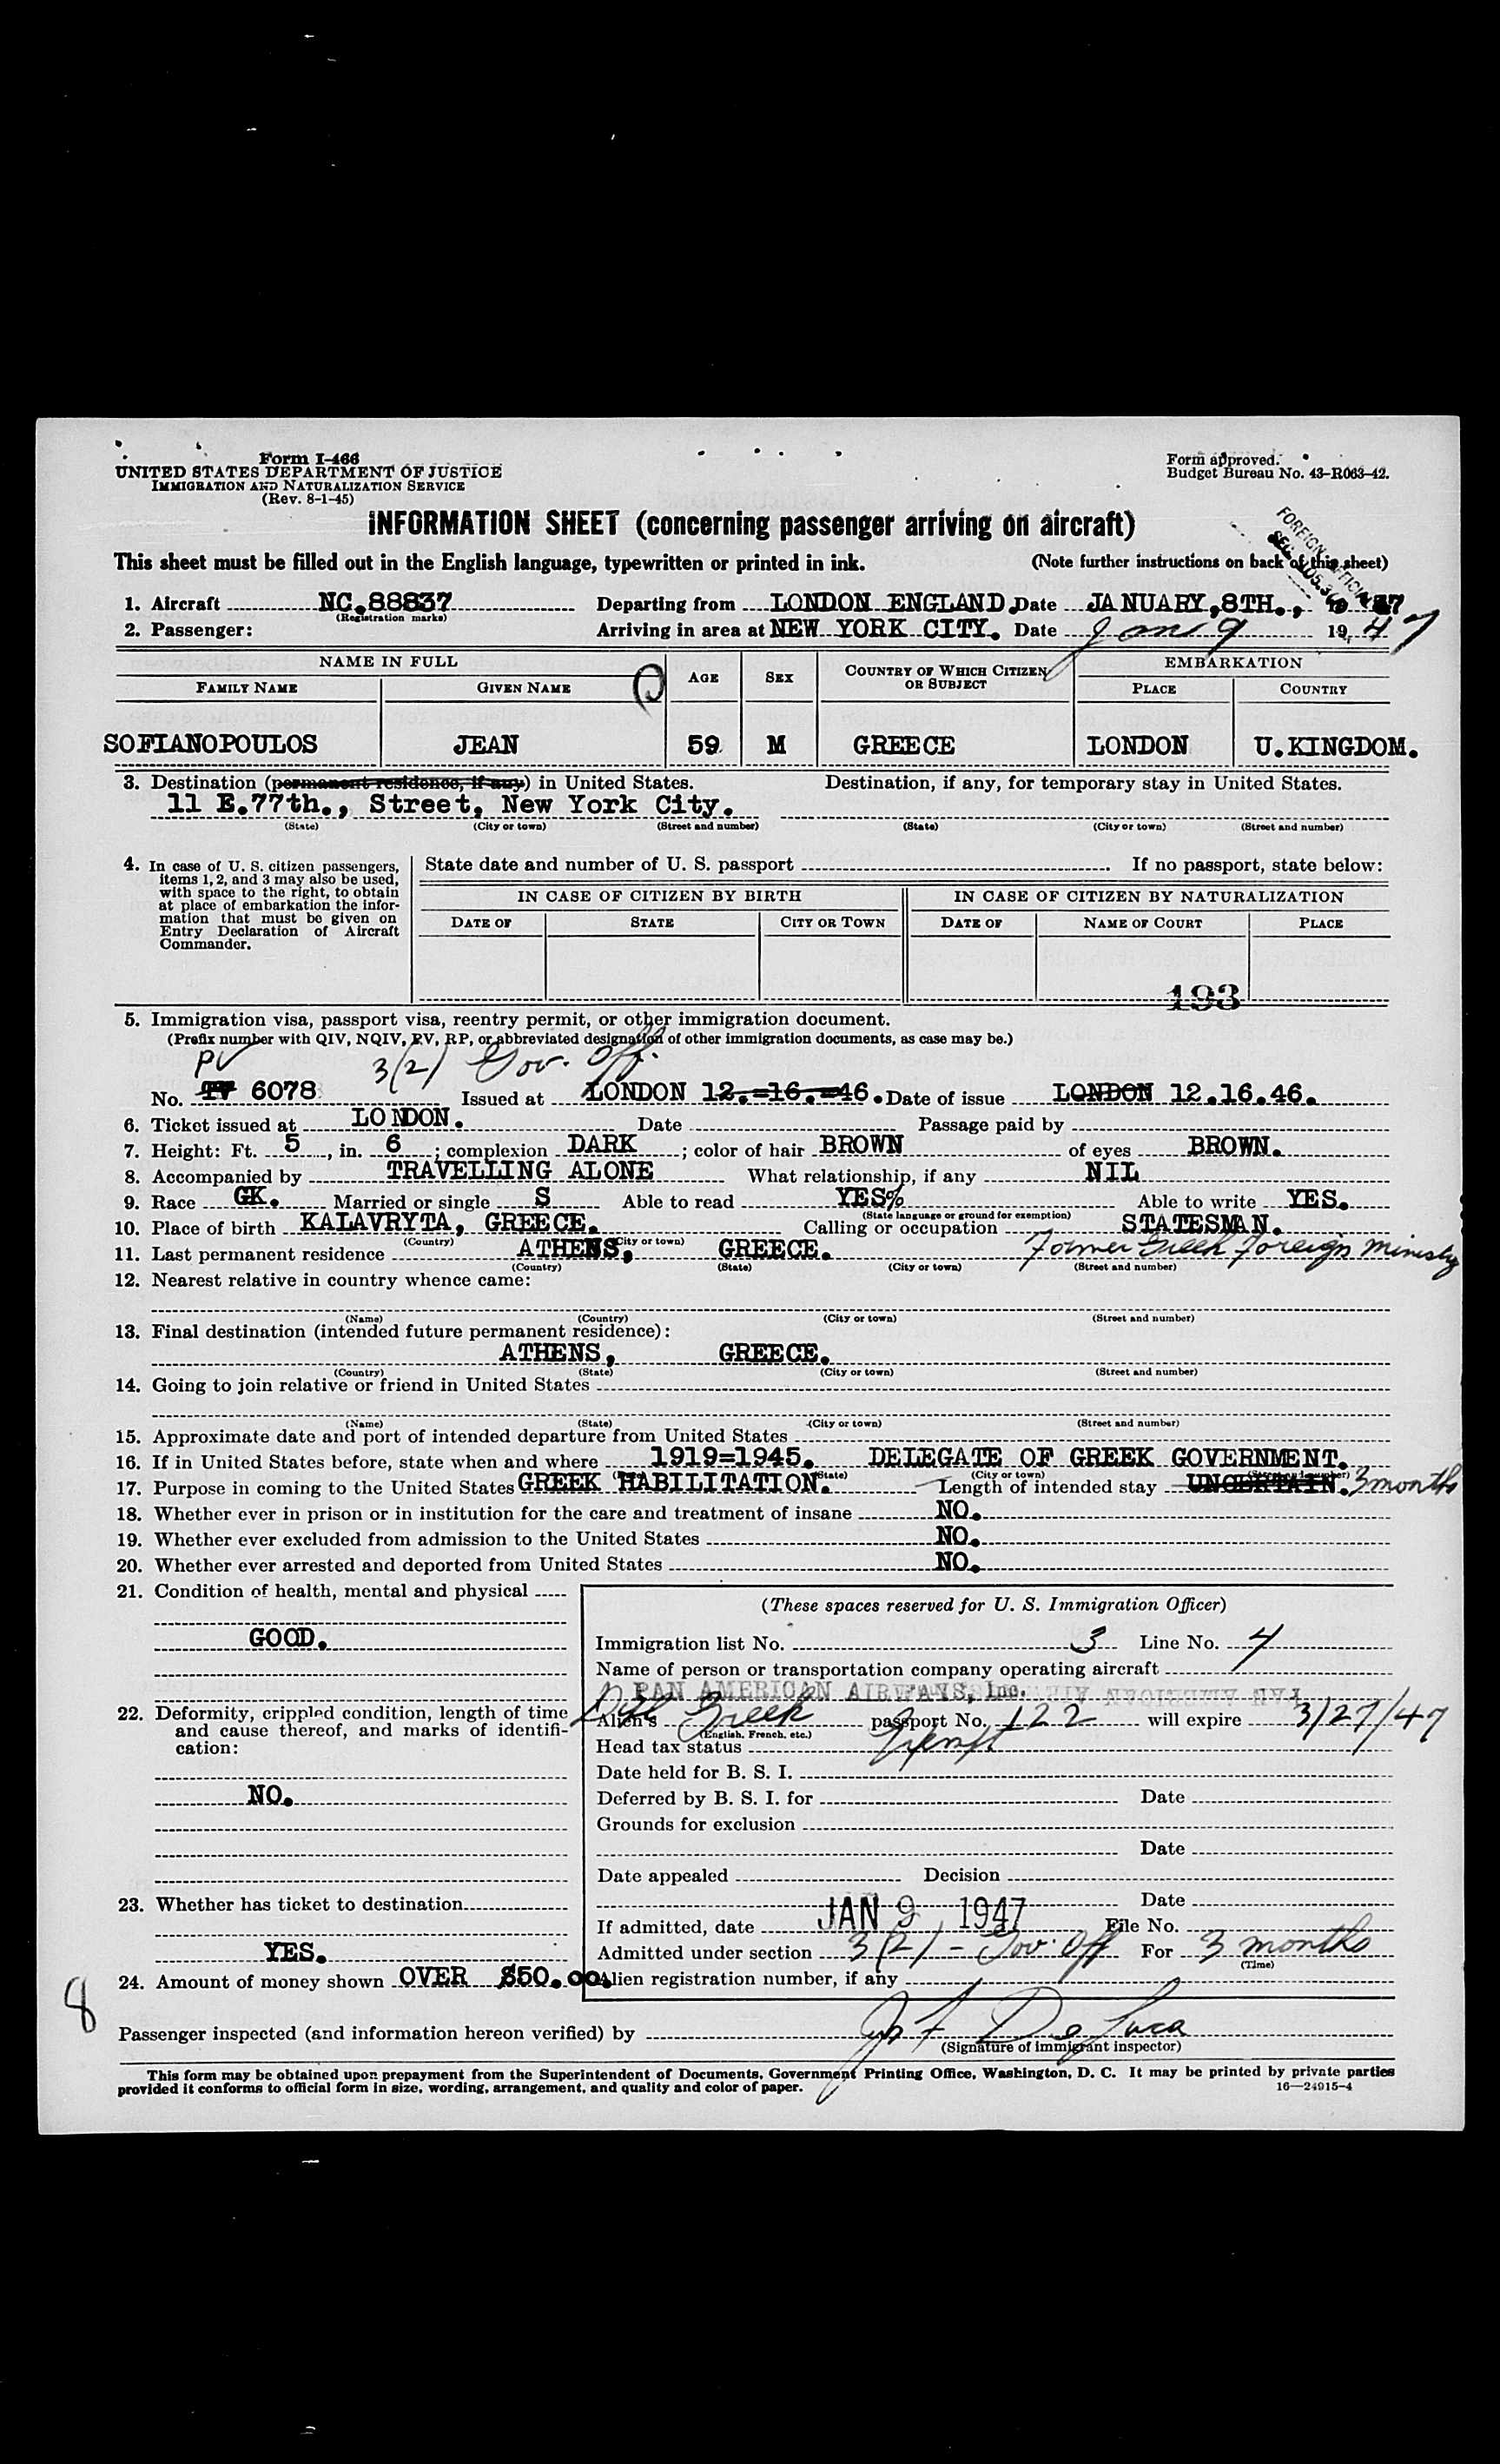 Form I-466
UNITED STATES DEPARTMENT OF JUSTICE
IMMIGRATION AND NATURALIZATION SERVICE
(Rev. 8-1-45)
Form approved.
Budget Bureau No. 43-R063-42.
INFORMATION SHEET (concerning passenger arriving on aircraft)
FOREIGN OFFICIAL
This sheet must be filled out in the English language, typewritten or printed in ink. (Note further instructions on back of this sheet)
1. Aircraft NC.88837 Departing from LONDON ENGLAND. Date JANUARY, 8TH., 1947
(Registration marks)
2. Passenger: Arriving in area at NEW YORK CITY. Date Jan 9 1947
NAME IN FULL AGE SEX COUNTRY OF WHICH CITIZEN OR SUBJECT EMBARKATION
FAMILY NAME GIVEN NAME PLACE COUNTRY
SOFIANOPOULOS JEAN 59 M GREECE LONDON U.KINGDOM.
3. Destination (permanent residence, if any) in United States. Destination, if any, for temporary stay in United States.
11 E.77th., Street, New York City.
(State) (City or town) (Street and number) (State) (City or town) (Street and number)
4. In case of U. S. citizen passengers, items 1, 2, and 3 may also be used, with space to the right, to obtain at place of embarkation the information that must be given on Entry Declaration of Aircraft Commander.
State date and number of U. S. passport If no passport, state below:
IN CASE OF CITIZEN BY BIRTH IN CASE OF CITIZEN BY NATURALIZATION
DATE OF STATE CITY OR TOWN DATE OF NAME OF COURT PLACE
193
5. Immigration visa, passport visa, reentry permit, or other immigration document.
(Prefix number with QIV, NQIV, PV, RP, or abbreviated designation of other immigration documents, as case may be.)
PV 3(2) Gov. Off.
No. 6078 Issued at LONDON 12.=16.=46. Date of issue LONDON 12.16.46.
6. Ticket issued at LONDON. Date Passage paid by
7. Height: Ft. 5, in. 6; complexion DARK; color of hair BROWN of eyes BROWN.
8. Accompanied by TRAVELLING ALONE What relationship, if any NIL
9. Race GK. Married or single S Able to read YES% Able to write YES.
(State language or ground for exemption)
10. Place of birth KALAVRYTA, GREECE. Calling or occupation STATESMAN.
(Country) (City or town)
Former Greek Foreign Ministry
11. Last permanent residence ATHENS, GREECE.
(Country) (State) (City or town) (Street and number)
12. Nearest relative in country whence came:
(Name) (Country) (City or town) (Street and number)
13. Final destination (intended future permanent residence):
ATHENS, GREECE.
(Country) (State) (City or town) (Street and number)
14. Going to join relative or friend in United States
(Name) (State) (City or town) (Street and number)
15. Approximate date and port of intended departure from United States
16. If in United States before, state when and where 1919=1945. DELEGATE OF GREEK GOVERNMENT.
(State) (City or town)
17. Purpose in coming to the United States GREEK HABILITATION. Length of intended stay UNCERTAIN. 3 months
18. Whether ever in prison or in institution for the care and treatment of insane NO.
19. Whether ever excluded from admission to the United States NO.
20. Whether ever arrested and deported from United States NO.
21. Condition of health, mental and physical
GOOD.
22. Deformity, crippled condition, length of time and cause thereof, and marks of identification:
NO.
23. Whether has ticket to destination
YES.
24. Amount of money shown OVER $50.00.
(These spaces reserved for U. S. Immigration Officer)
Immigration list No. 3 Line No. 4
Name of person or transportation company operating aircraft
PAN AMERICAN AIRWAYS, Inc.
Alien's Greek passport No. 122 will expire 3/27/47
(English, French, etc.)
Head tax status Exempt
Date held for B. S. I.
Deferred by B. S. I. for Date
Grounds for exclusion
Date
Date appealed Decision
Date
If admitted, date JAN 9 1947 File No.
Admitted under section 3(2) - Gov. Off For 3 months
(Time)
Alien registration number, if any
8
Passenger inspected (and information hereon verified) by De Luca
(Signature of immigrant inspector)
This form may be obtained upon prepayment from the Superintendent of Documents, Government Printing Office, Washington, D. C. It may be printed by private parties
provided it conforms to official form in size, wording, arrangement, and quality and color of paper. 16—24915-4